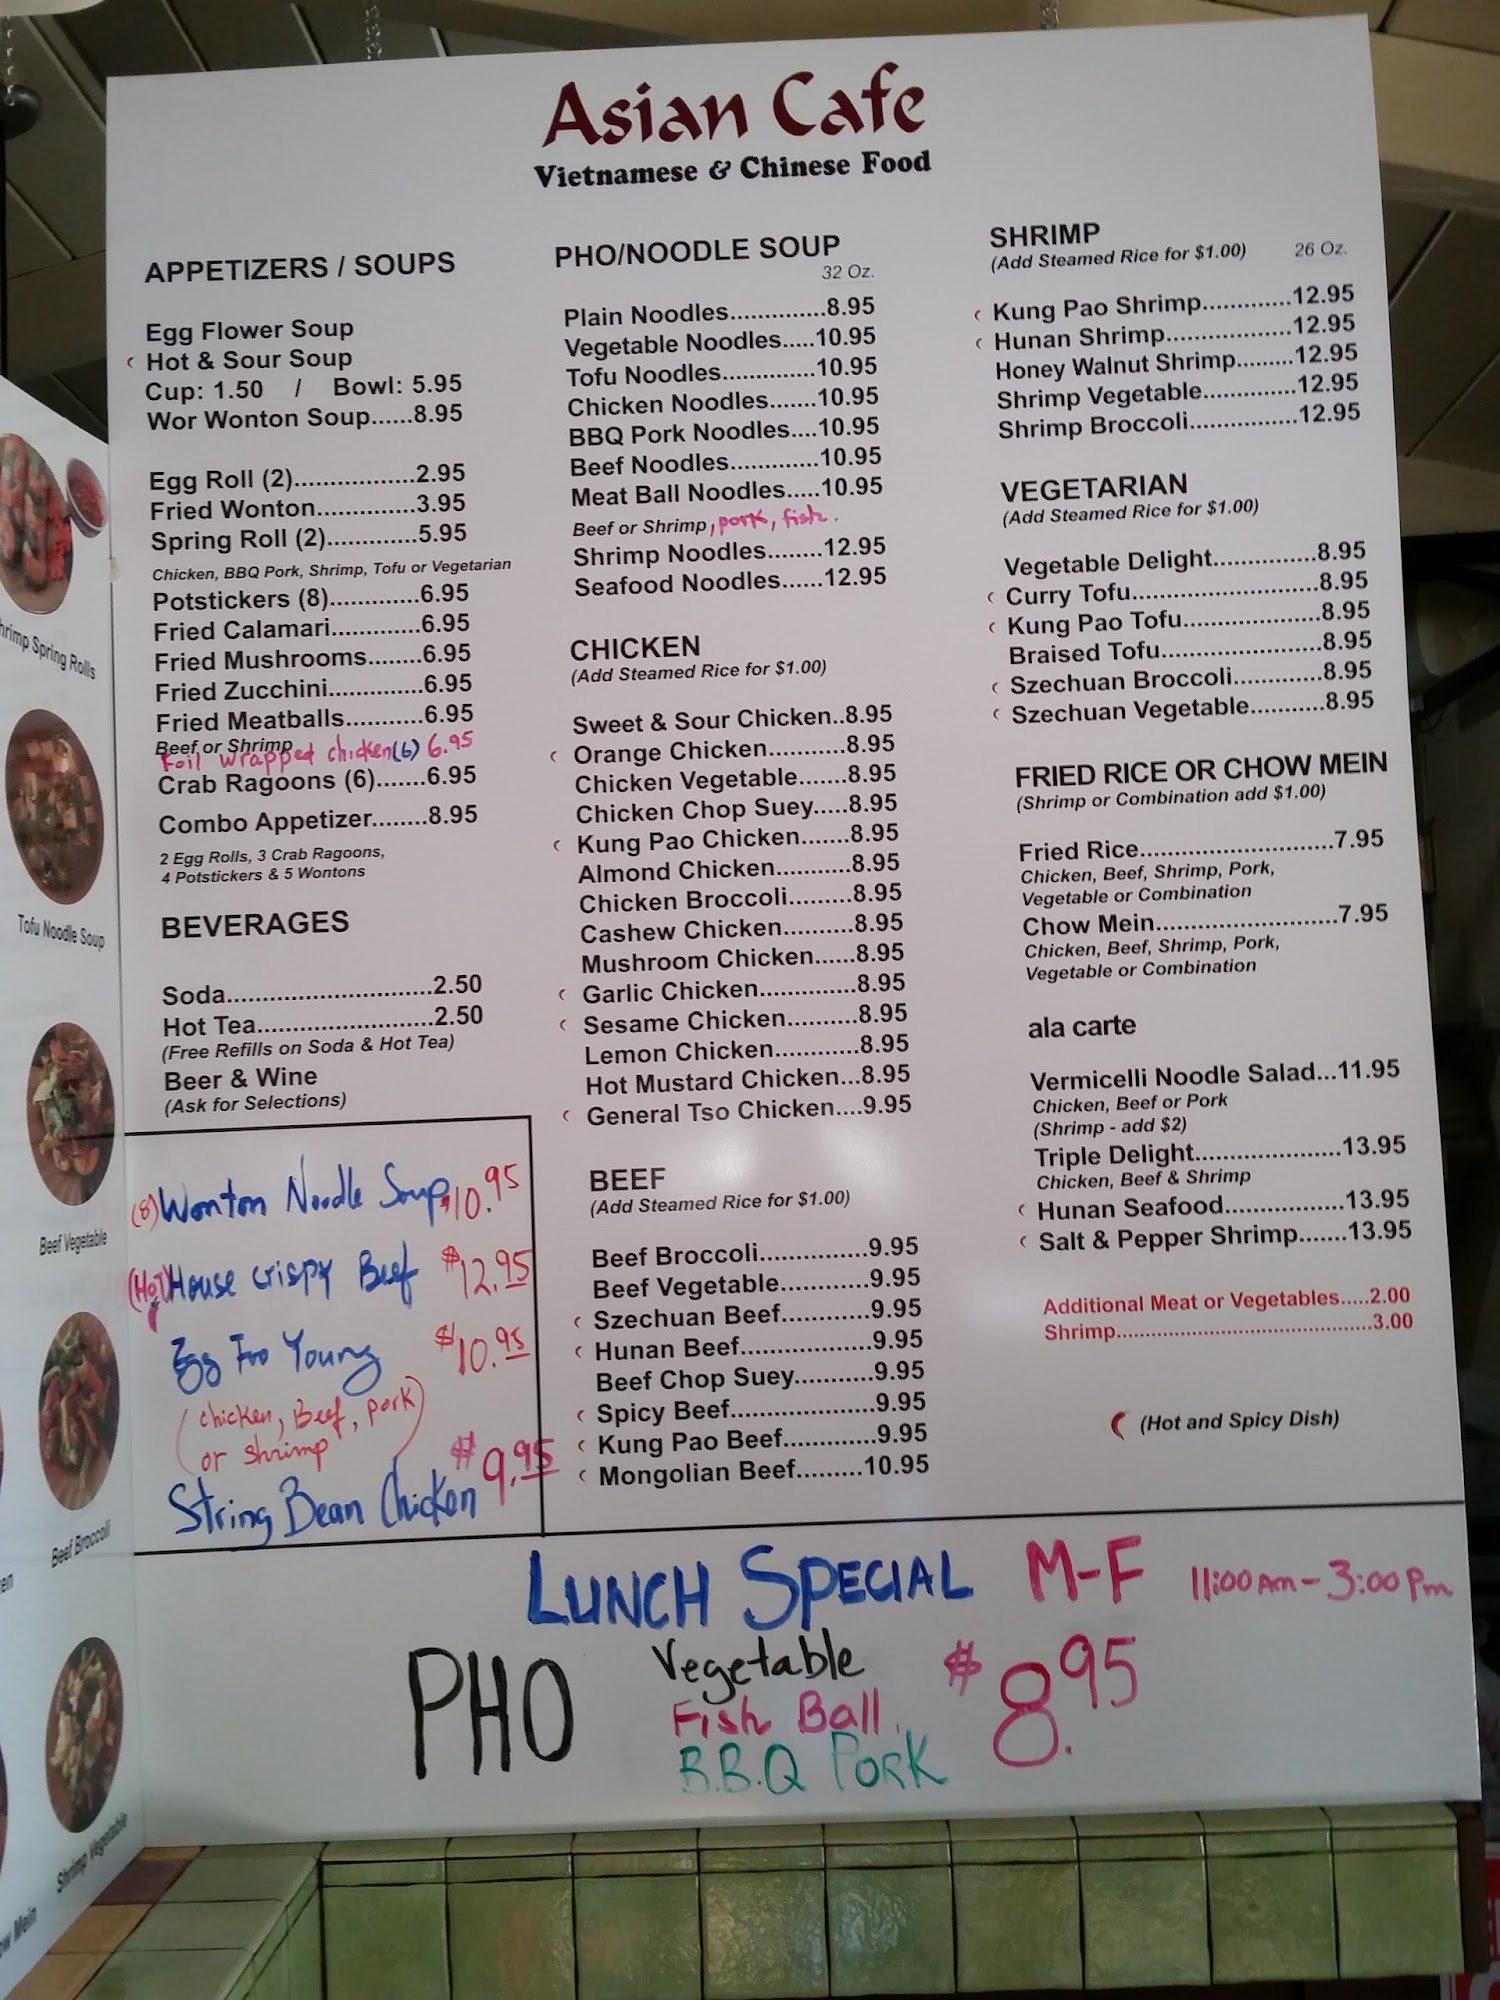 Asian Cafe
Vietnamese & Chinese Food
APPETIZERS / SOUPS
Egg Flower Soup
Hot & Sour Soup
Cup: 1.50 / Bowl: 5.95
Wor Wonton Soup......8.95
Egg Roll (2).................2.95
Fried Wonton..............3.95
Spring Roll (2).............5.95
Chicken, BBQ Pork, Shrimp, Tofu or Vegetarian
Potstickers (8).............6.95
Fried Calamari.............6.95
Fried Mushrooms........6.95
Fried Zucchini..............6.95
Fried Meatballs...........6.95
Beef or Shrimp
Foil wrapped chicken(6) 6.95
Crab Ragoons (6).......6.95
Combo Appetizer........8.95
2 Egg Rolls, 3 Crab Ragoons,
4 Potstickers & 5 Wontons
BEVERAGES
Soda.............................2.50
Hot Tea.........................2.50
(Free Refills on Soda & Hot Tea)
Beer & Wine
(Ask for Selections)
(8) Wonton Noodle Soup $10.95
(HOT) House crispy Beef $12.95
Egg Foo Young $10.95
(chicken, Beef, pork
or shrimp)
String Bean Chicken $9.95
PHO/NOODLE SOUP
32 Oz.
Plain Noodles..............8.95
Vegetable Noodles.....10.95
Tofu Noodles..............10.95
Chicken Noodles.......10.95
BBQ Pork Noodles....10.95
Beef Noodles.............10.95
Meat Ball Noodles.....10.95
Beef or Shrimp, pork, fish.
Shrimp Noodles........12.95
Seafood Noodles......12.95
CHICKEN
(Add Steamed Rice for $1.00)
Sweet & Sour Chicken..8.95
Orange Chicken...........8.95
Chicken Vegetable.......8.95
Chicken Chop Suey.....8.95
Kung Pao Chicken.......8.95
Almond Chicken...........8.95
Chicken Broccoli.........8.95
Cashew Chicken..........8.95
Mushroom Chicken......8.95
Garlic Chicken..............8.95
Sesame Chicken..........8.95
Lemon Chicken............8.95
Hot Mustard Chicken...8.95
General Tso Chicken....9.95
BEEF
(Add Steamed Rice for $1.00)
Beef Broccoli...............9.95
Beef Vegetable.............9.95
Szechuan Beef.............9.95
Hunan Beef...................9.95
Beef Chop Suey...........9.95
Spicy Beef....................9.95
Kung Pao Beef.............9.95
Mongolian Beef.........10.95
SHRIMP
(Add Steamed Rice for $1.00) 26 Oz.
Kung Pao Shrimp.............12.95
Hunan Shrimp..................12.95
Honey Walnut Shrimp........12.95
Shrimp Vegetable.............12.95
Shrimp Broccoli................12.95
VEGETARIAN
(Add Steamed Rice for $1.00)
Vegetable Delight...............8.95
Curry Tofu..........................8.95
Kung Pao Tofu...................8.95
Braised Tofu......................8.95
Szechuan Broccoli............8.95
Szechuan Vegetable..........8.95
FRIED RICE OR CHOW MEIN
(Shrimp or Combination add $1.00)
Fried Rice...........................7.95
Chicken, Beef, Shrimp, Pork,
Vegetable or Combination
Chow Mein.........................7.95
Chicken, Beef, Shrimp, Pork,
Vegetable or Combination
ala carte
Vermicelli Noodle Salad...11.95
Chicken, Beef or Pork
(Shrimp - add $2)
Triple Delight.....................13.95
Chicken, Beef & Shrimp
Hunan Seafood.................13.95
Salt & Pepper Shrimp.......13.95
Additional Meat or Vegetables.....2.00
Shrimp...........................................3.00
(Hot and Spicy Dish)
LUNCH SPECIAL M-F 11:00 Am - 3:00 Pm
PHO
Vegetable
Fish Ball
B.B.Q PORK
$8.95
hrimp Spring Rolls
Tofu Noodle Soup
Beef Vegetable
Beef Broccoli
en
Shrimp Vegetable
ow Mein